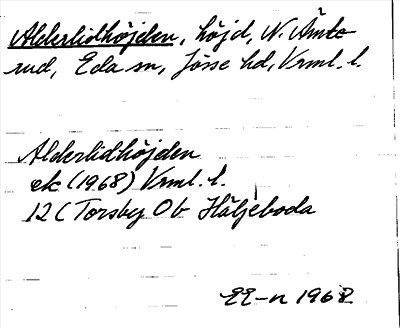 Alderlidhöjden, höjd, N. Åmte-
rud, Eda sn, Jösse hd, Vrml. l.
Alderlidhöjden
ek (1968) Vrml. l.
12 C Torsby 0 b Häljeboda
EE-n 1968